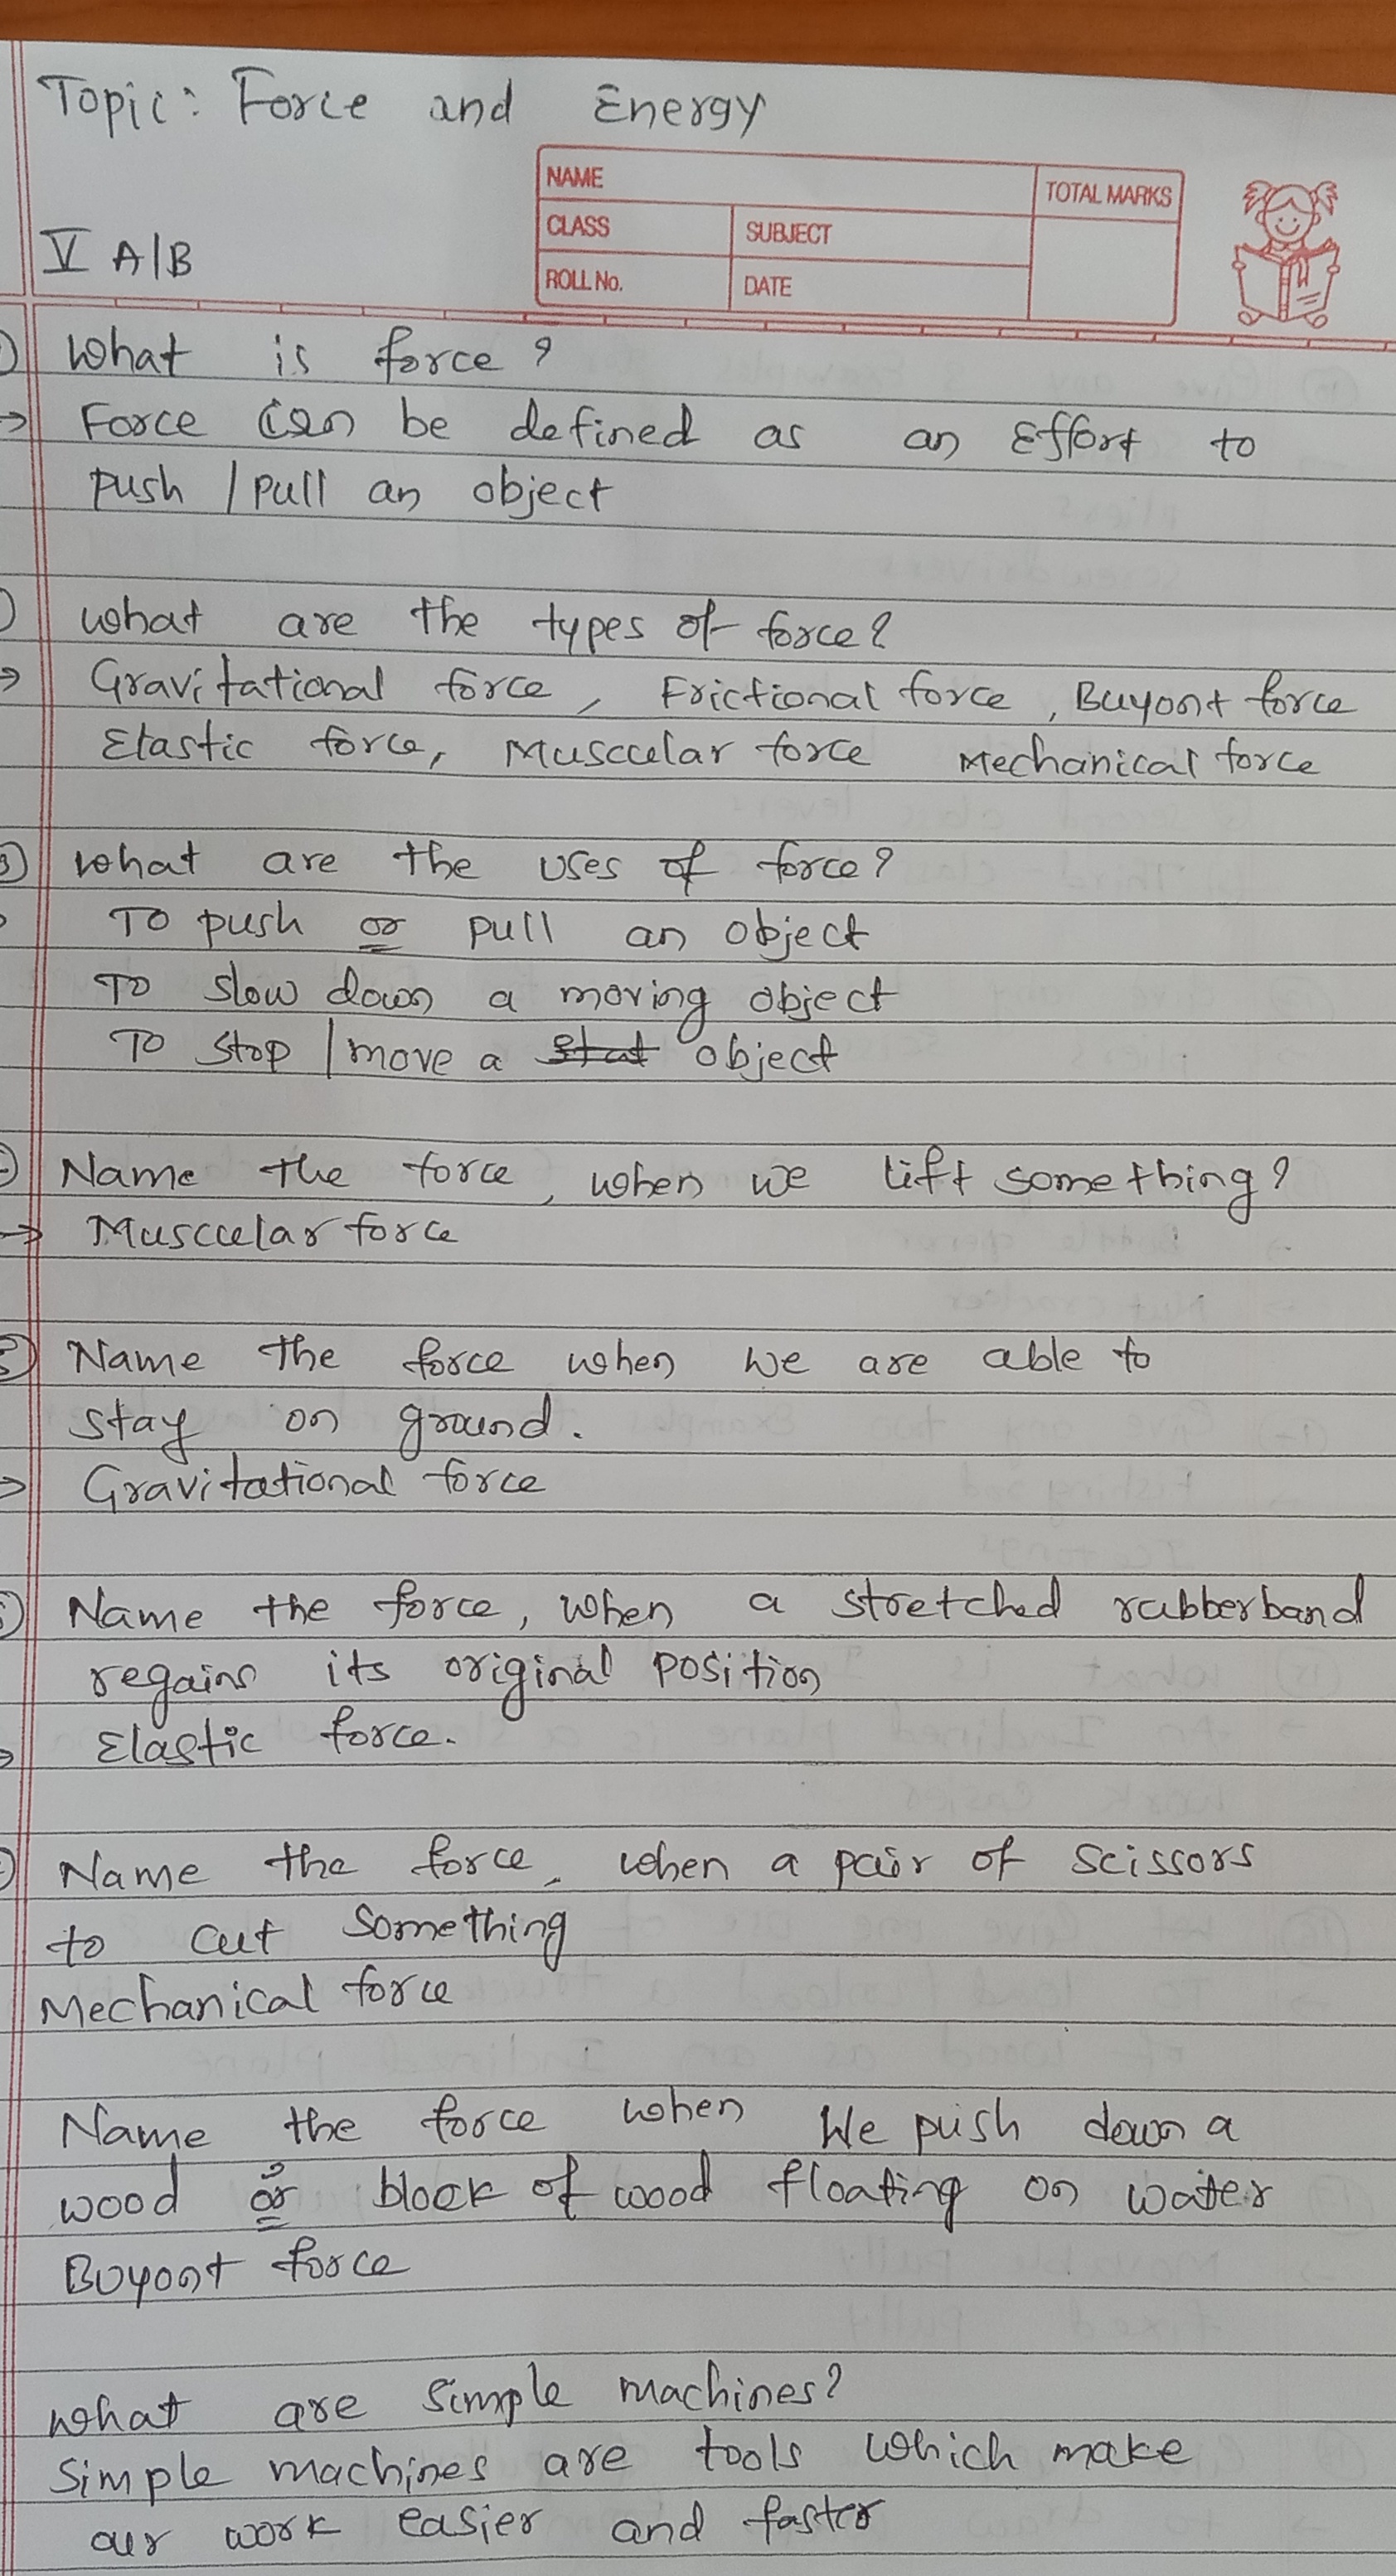 Topic: Force and Energy
NAME
TOTAL MARKS
V A/B
CLASS
SUBJECT
ROLL No.
DATE
What is force?
→ Force can be defined as an Effort to
push / pull an object
What are the types of force?
→ Gravitational force, Frictional force, Buyont force
Elastic force, Muscular force Mechanical force
3) What are the uses of force?
To push or pull an object
To slow down a moving object
To stop / move a object
Name the force, when we lift something?
→ Muscular force
5) Name the force when we are able to
stay on ground.
→ Gravitational force
Name the force, when a stretched rubberband
regains its original position
→ Elastic force.
Name the force, when a pair of scissors
to cut something
Mechanical force
Name the force when We push down a
wood or block of wood floating on water
Buyont force
What are simple machines?
Simple machines are tools which make
our work easier and faster